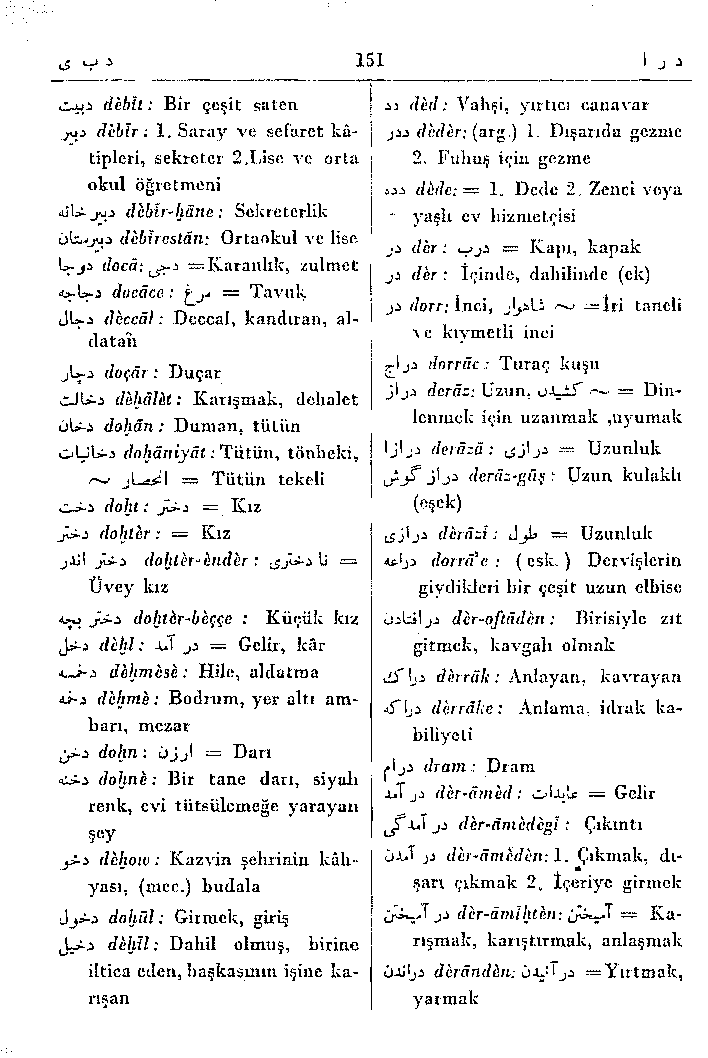 د ب ی 151 د ر ا
دبیت dèbît: Bir çeşit saten
دبیر dèbîr: 1. Saray ve sefaret kâ-
tipleri, sekreter 2.Lise ve orta
okul öğretmeni
دبیر خانه dèbîr-ḫāne: Sekreterlik
دبیرستان dèbîrestān: Ortaokul ve lise
دوجا docā: دجی =Karanlık, zulmet
دجاجه docāce: مرغ = Tavuk
دجال dèccāl: Deccal, kandıran, al-
datan
دچار doçār: Duçar
دخالت dèḫālèt: Karışmak, dehalet
دخان doḫān: Duman, tütün
دخانیات doḫāniyāt: Tütün, tönbeki,
انحصار ~ = Tütün tekeli
دخت doḫt: دختر = Kız
دختر doḫtèr: = Kız
دختر اندر doḫtèr-èndèr: نا دختری =
Üvey kız
دختر بچه doḫtèr-bèççe : Küçük kız
دخل dèḫl: در آمد = Gelir, kâr
دخمسه dèḫmèsè: Hile, aldatma
دخمه dèḫmè: Bodrum, yer altı am-
barı, mezar
دخن doḫn: ارزن = Darı
دخنه doḫnè: Bir tane darı, siyah
renk, evi tütsülemeğe yarayan
şey
دخو dèḫow: Kazvin şehrinin kâh-
yası, (mec.) budala
دخول doḫūl: Girmek, giriş
دخیل dèḫîl: Dahil olmuş, birine
iltica eden, başkasının işine ka-
rışan
دد dèd: Vahşi, yırtıcı canavar
ددر dèdèr: (arg.) 1. Dışarıda gezme
2. Fuhuş için gezme
دده dède: = 1. Dede 2. Zenci veya
yaşlı ev hizmetçisi
در dèr: درب = Kapı, kapak
در dèr: İçinde, dahilinde (ek)
در dorr: İnci, شاهوار ~ =İri taneli
ve kıymetli inci
دراج dorrāc: Turaç kuşu
دراز derāz: Uzun, کشیدن ~ = Din-
lenmek için uzanmak ,uyumak
درازا derāzā: درازی = Uzunluk
دراز گوش derāz-gūş: Uzun kulaklı
(eşek)
درازی dèrāzî: طول = Uzunluk
دراعه dorrā'e: (esk.) Dervişlerin
giydikleri bir çeşit uzun elbise
درافتادن dèr-oftādèn: Birisiyle zıt
gitmek, kavgalı olmak
دراک dèrrāk: Anlayan, kavrayan
دراکه dèrrāke: Anlama, idrak ka-
biliyeti
درام dram: Dram
در آمد dèr-āmèd: عایدات = Gelir
در آمدگی dèr-āmèdègî: Çıkıntı
در آمدن dèr-āmèdèn: 1. Çıkmak, dı-
şarı çıkmak 2. İçeriye girmek
در آمیختن dèr-āmîḫtèn: آمیختن = Ka-
rışmak, karıştırmak, anlaşmak
دراندن dèrāndèn: درآنیدن =Yırtmak,
yarmak